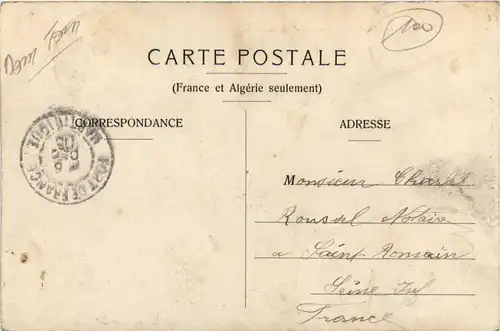 100
CARTE POSTALE
(France et Algérie seulement)
CORRESPONDANCE
ADRESSE
FORT DE FRANCE
MARTINIQUE
Monsieur
Roussel Notaire
a Saint Romain
Seine Inf
France